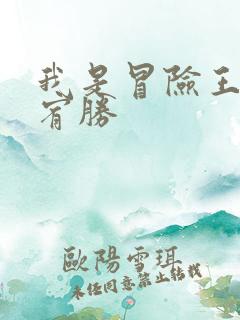 我是冒險王
宥勝
歐陽雪珥
未经同意禁止转载